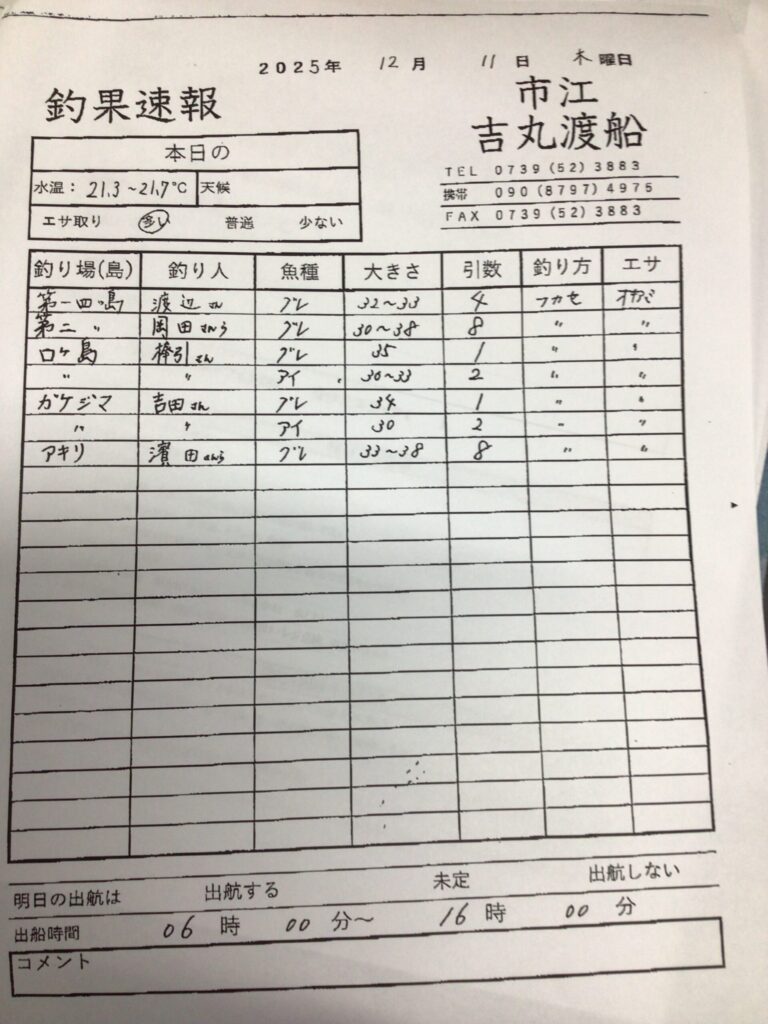 2025年 12月 11日 木曜日
釣果速報
市江
吉丸渡船
TEL 0739(52)3883
携帯 090(8797)4975
FAX 0739(52)3883
本日の
水温: 21.3~21.7℃ 天候
エサ取り 多い 普通 少ない
釣り場(島) 釣り人 魚種 大きさ 引数 釣り方 エサ
第一四ツ島 渡辺さん グレ 32~33 4 フカセ オキアミ
第二 〃 岡田さんら グレ 30~38 8 〃 〃
ロケ島 榊引さん グレ 35 1 〃 〃
〃 〃 アイ 30~33 2 〃 〃
ガケジマ 吉田さん グレ 34 1 〃 〃
〃 〃 アイ 30 2 〃 〃
アキリ 濱田さんら グレ 33~38 8 〃 〃
明日の出航は 出航する 未定 出航しない
出船時間 06時 00分~ 16時 00分
コメント